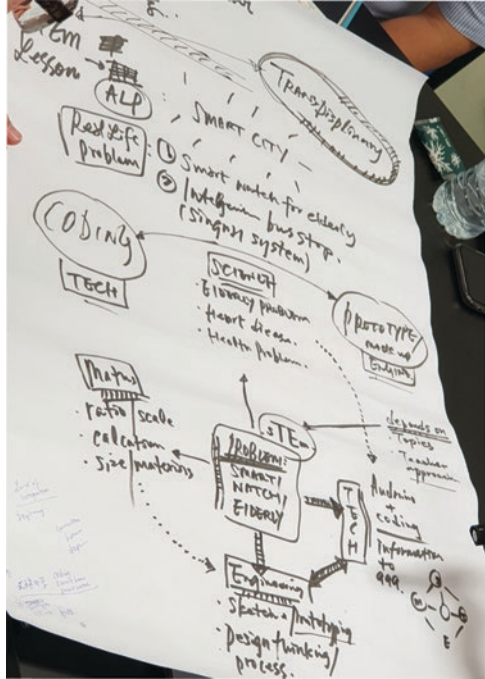 EM
Lesson
ALP
TRANSDISPLINARY
SMART CITY
Real life
Problem
: ① Smart watch for elderly
② Intelligent bus stop.
(signal system)
CODING
TECH
SCIENCE
· Elderly problem
· Heart disease.
· Health Problem.
PROTOTYPE/
made up
ENGING
Maths
· ratio scale
· calcation
· size/materials
STEM
PROBLEM:
SMART/
WATCH/
ELDERLY
depends on
· Topics
· Teacher
approach
TECH
coding
information
to
999.
Engineering
· sketch/prototyping
· Design thinking/
process.
E